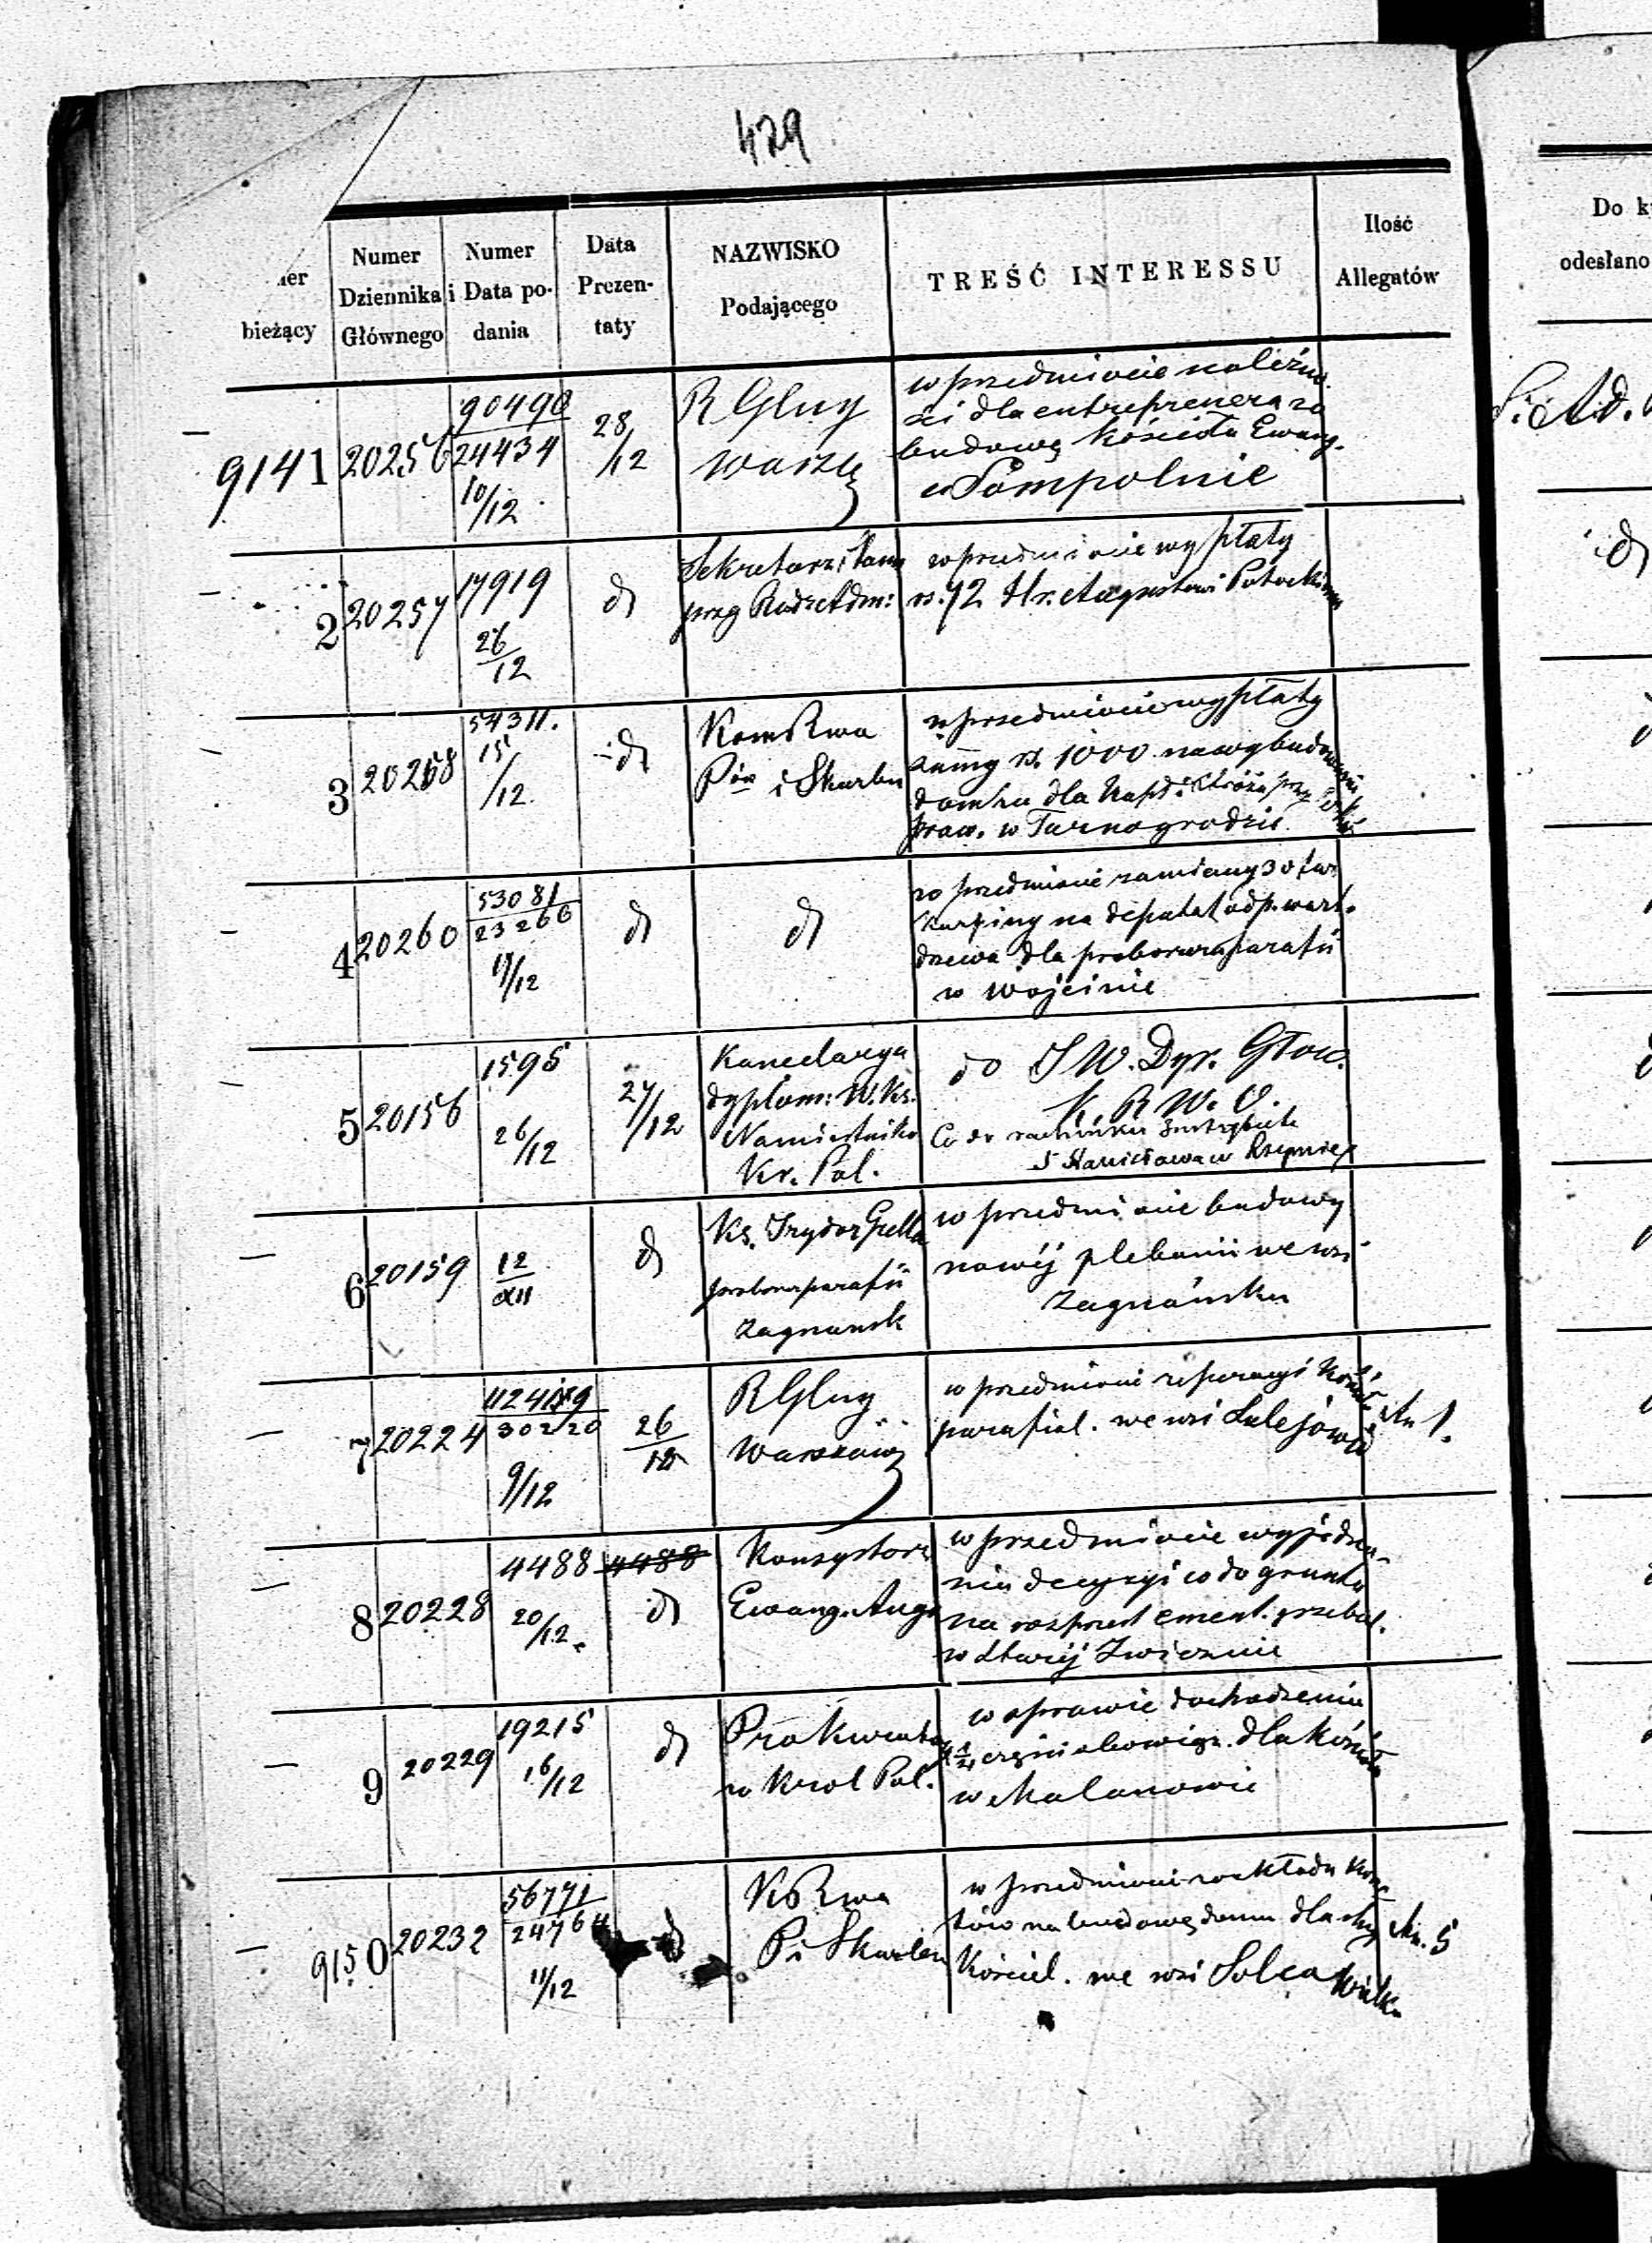 429
Numer Dziennika Głównego
Numer i Data podania
Data Prezentaty
NAZWISKO Podającego
TREŚĆ INTERESSU
Ilość Allegatów
bieżący
Do
odesłano
9141
20256
90490
24434
10/12
28/12
R Glny
Warsz
w przedmiocie należno
ści dla entreprenera za
budowę kościoła Ewang.
w Sompolnie
2
20257
17919
26/12
d
Sekretarz Stanu
przy Radzie Adm:
w przedmiocie wypłaty
rs. 72 Hr. Augustowi Potockiemu
3
20258
54311.
15/12
d
Kom Rwa
P i Skarbu
w przedmiocie wypłaty
summy rs. 1000 na wybudowanie
domku dla Kapł i Stróża przy
praw. w Tarnogrodzie
4
20260
53081
23266
17/12
d
d
w przedmiocie zamiany 30 fur
karpiny na deputat odp. wart.
drzewa dla proboszcza parafii
w Wójcinie
5
20156
1595
26/12
27/12
Kancelarya
dyplom: W. Ks.
Namiestnika
Kr. Pol.
do J W. Dyr. Głow.
K. R W. O.
Co do rachunku Instytutu
S Stanisława w Rzymie
6
20159
12/XII
d
Ks. Izydor
probosz parafii
Zagnansk
w przedmiocie budowy
nowéj plebanii we wsi
Zagnańsku
7
20224
30220
9/12
26/12
R Glny
Warszaw
w przedmiocie reperacyi Kościoła
parafial. we wsi Sulejowie
An 1.
8
20228
4488
20/12
4488
d
Konsystorz
Ewang. Augs
w przedmiocie wyjedna-
nia decyzyi co do gruntu
na rozprzest cment. grzebal.
w Starej Iwicznie
9
20229
19215
16/12
d
Prokurator
w Król Pol.
w sprawie dochodzenia
części obowiąz. dla kościoła
w Malanowie
9150
20232
56771
24764
11/12
d
K R wa
P i Skarbu
w przedmiocie rozkładu kosz
tów na budowę domu dla służ
Kościel. we wsi Solca Wielk.
An. 5